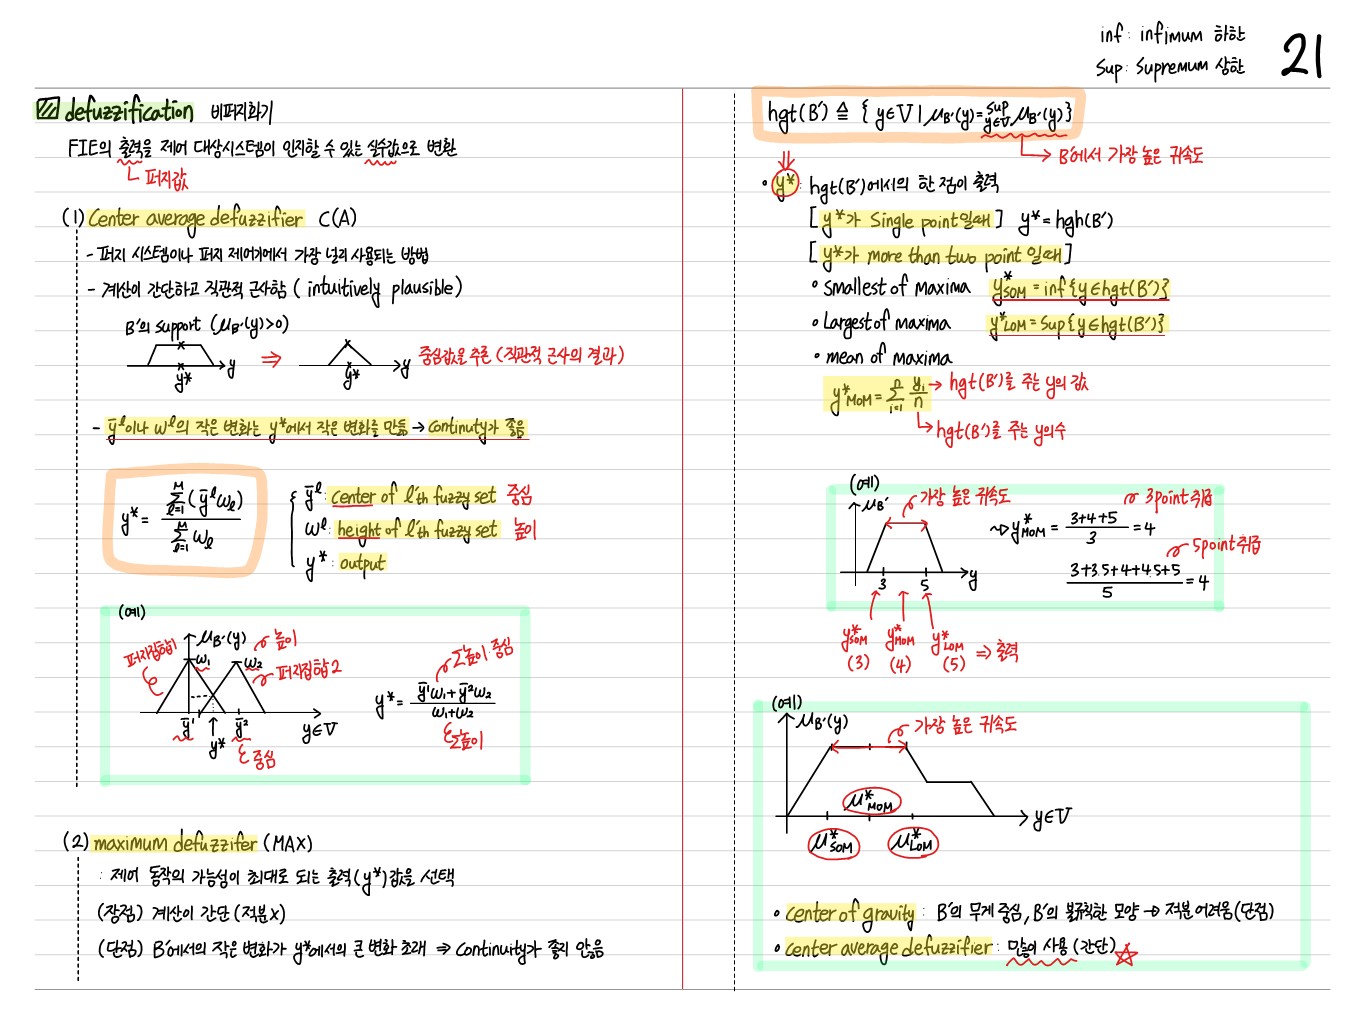 inf : infimum 하한
Sup : Supremum 상한
21
defuzzification 비퍼지화기
FIE의 출력을 제어 대상시스템이 인지할 수 있는 실수값으로 변환
퍼지값
(1) Center average defuzzifier C(A)
- 퍼지 시스템이나 퍼지 제어기에서 가장 널리 사용되는 방법
- 계산이 간단하고 직관적 근사함 ( intuitively plausible)
B'의 support (μB'(y)>0)
y* y ⇒ y* y 중심값으로 추론 (직관적 근사의 결과)
- ȳˡ이나 wˡ의 작은 변화는 y*에서 작은 변화를 만듦 → continuity가 좋음
y* = Σ(l=1→M)(ȳˡ wl) / Σ(l=1→M) wl
ȳˡ: center of l'th fuzzy set 중심
wˡ: height of l'th fuzzy set 높이
y*: output
(예)
μB'(y) 높이
퍼지집합1 w1 w2 퍼지집합2
ȳ¹ y* ȳ² y∈V
중심
Σ높이·중심
y* = (ȳ¹w1+ȳ²w2) / (w1+w2)
Σ높이
(2) maximum defuzzifer (MAX)
: 제어 동작의 가능성이 최대로 되는 출력(y*)값을 선택
(장점) 계산이 간단 (적분x)
(단점) B'에서의 작은 변화가 y*에서의 큰 변화 초래 ⇒ Continuity가 좋지 않음
hgt(B') ≜ { y∈V | μB'(y) = sup y∈V μB'(y)}
→ B'에서 가장 높은 귀속도
• y*: hgt(B')에서의 한 점이 출력
[ y*가 Single point일때 ] y* = hgh(B')
[ y*가 more than two point 일때 ]
• Smallest of maxima y*SOM = inf {y∈hgt(B')}
• Largest of maxima y*LOM = Sup{y∈hgt(B')}
• mean of maxima
y*MOM = Σ(i=1→n) yi/n → hgt(B')를 주는 y의 값
→ hgt(B')를 주는 y의수
(예)
μB' 가장 높은 귀속도 3point 취급
~> y*MOM = (3+4+5)/3 = 4
5point취급
(3+3.5+4+4.5+5)/5 = 4
3 5 y
y*SOM y*MOM y*LOM ⇒ 출력
(3) (4) (5)
(예)
μB'(y) 가장 높은 귀속도
μ*MOM
y∈V
μ*SOM μ*LOM
• center of gravity : B'의 무게 중심, B'의 불규칙한 모양 → 적분 어려움(단점)
• center average defuzzifier : 많이 사용 (간단) ☆